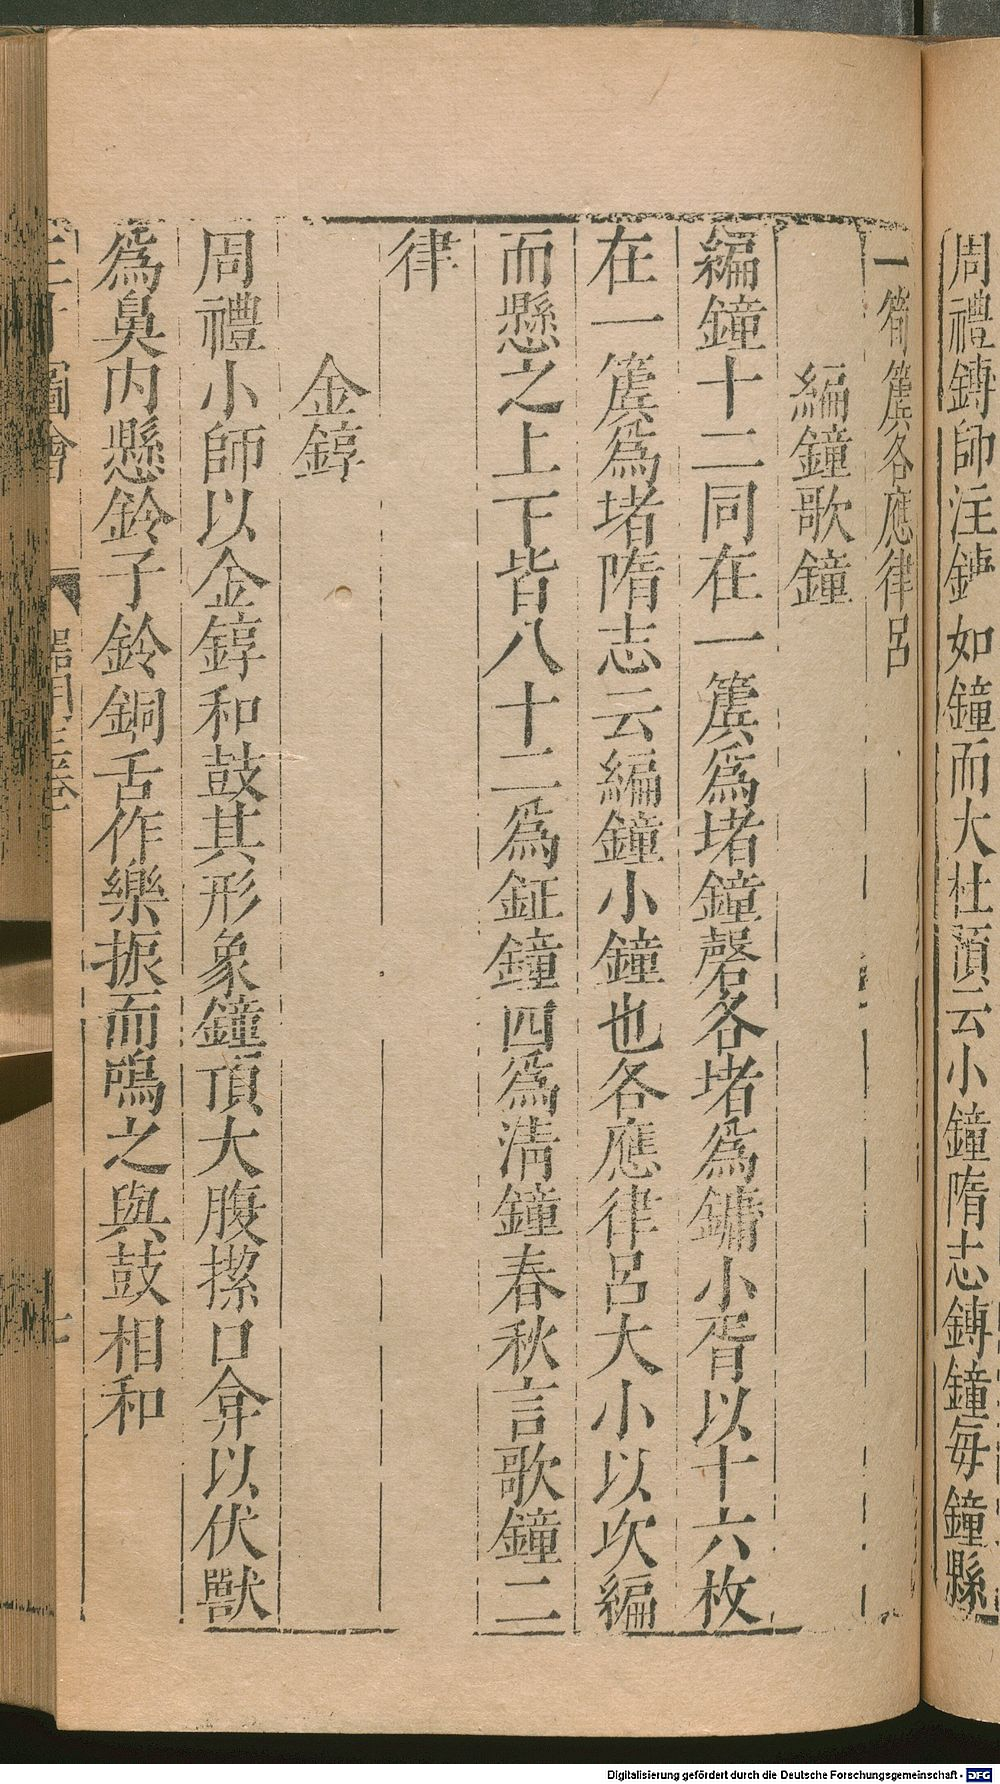 周禮鏄師注鏄如鐘而大杜預云小鐘隋志鏄鐘每鐘縣
一筍簴各應律呂
編鐘歌鐘
編鐘十二同在一簴爲堵鐘磬各堵爲鏞小胥以十六枚
在一簴爲堵隋志云編鐘小鐘也各應律呂大小以次編
而懸之上下皆八十二爲鉦鐘四爲淸鐘春秋言歌鐘二
律
金錞
周禮小師以金錞和鼓其形象鐘頂大腹㩇口弇以伏獸
爲鼻内懸鈴子鈴銅舌作樂振而鳴之與鼓相和
圖會
器用三卷
Digitalisierung gefördert durch die Deutsche Forschungsgemeinschaft - DFG